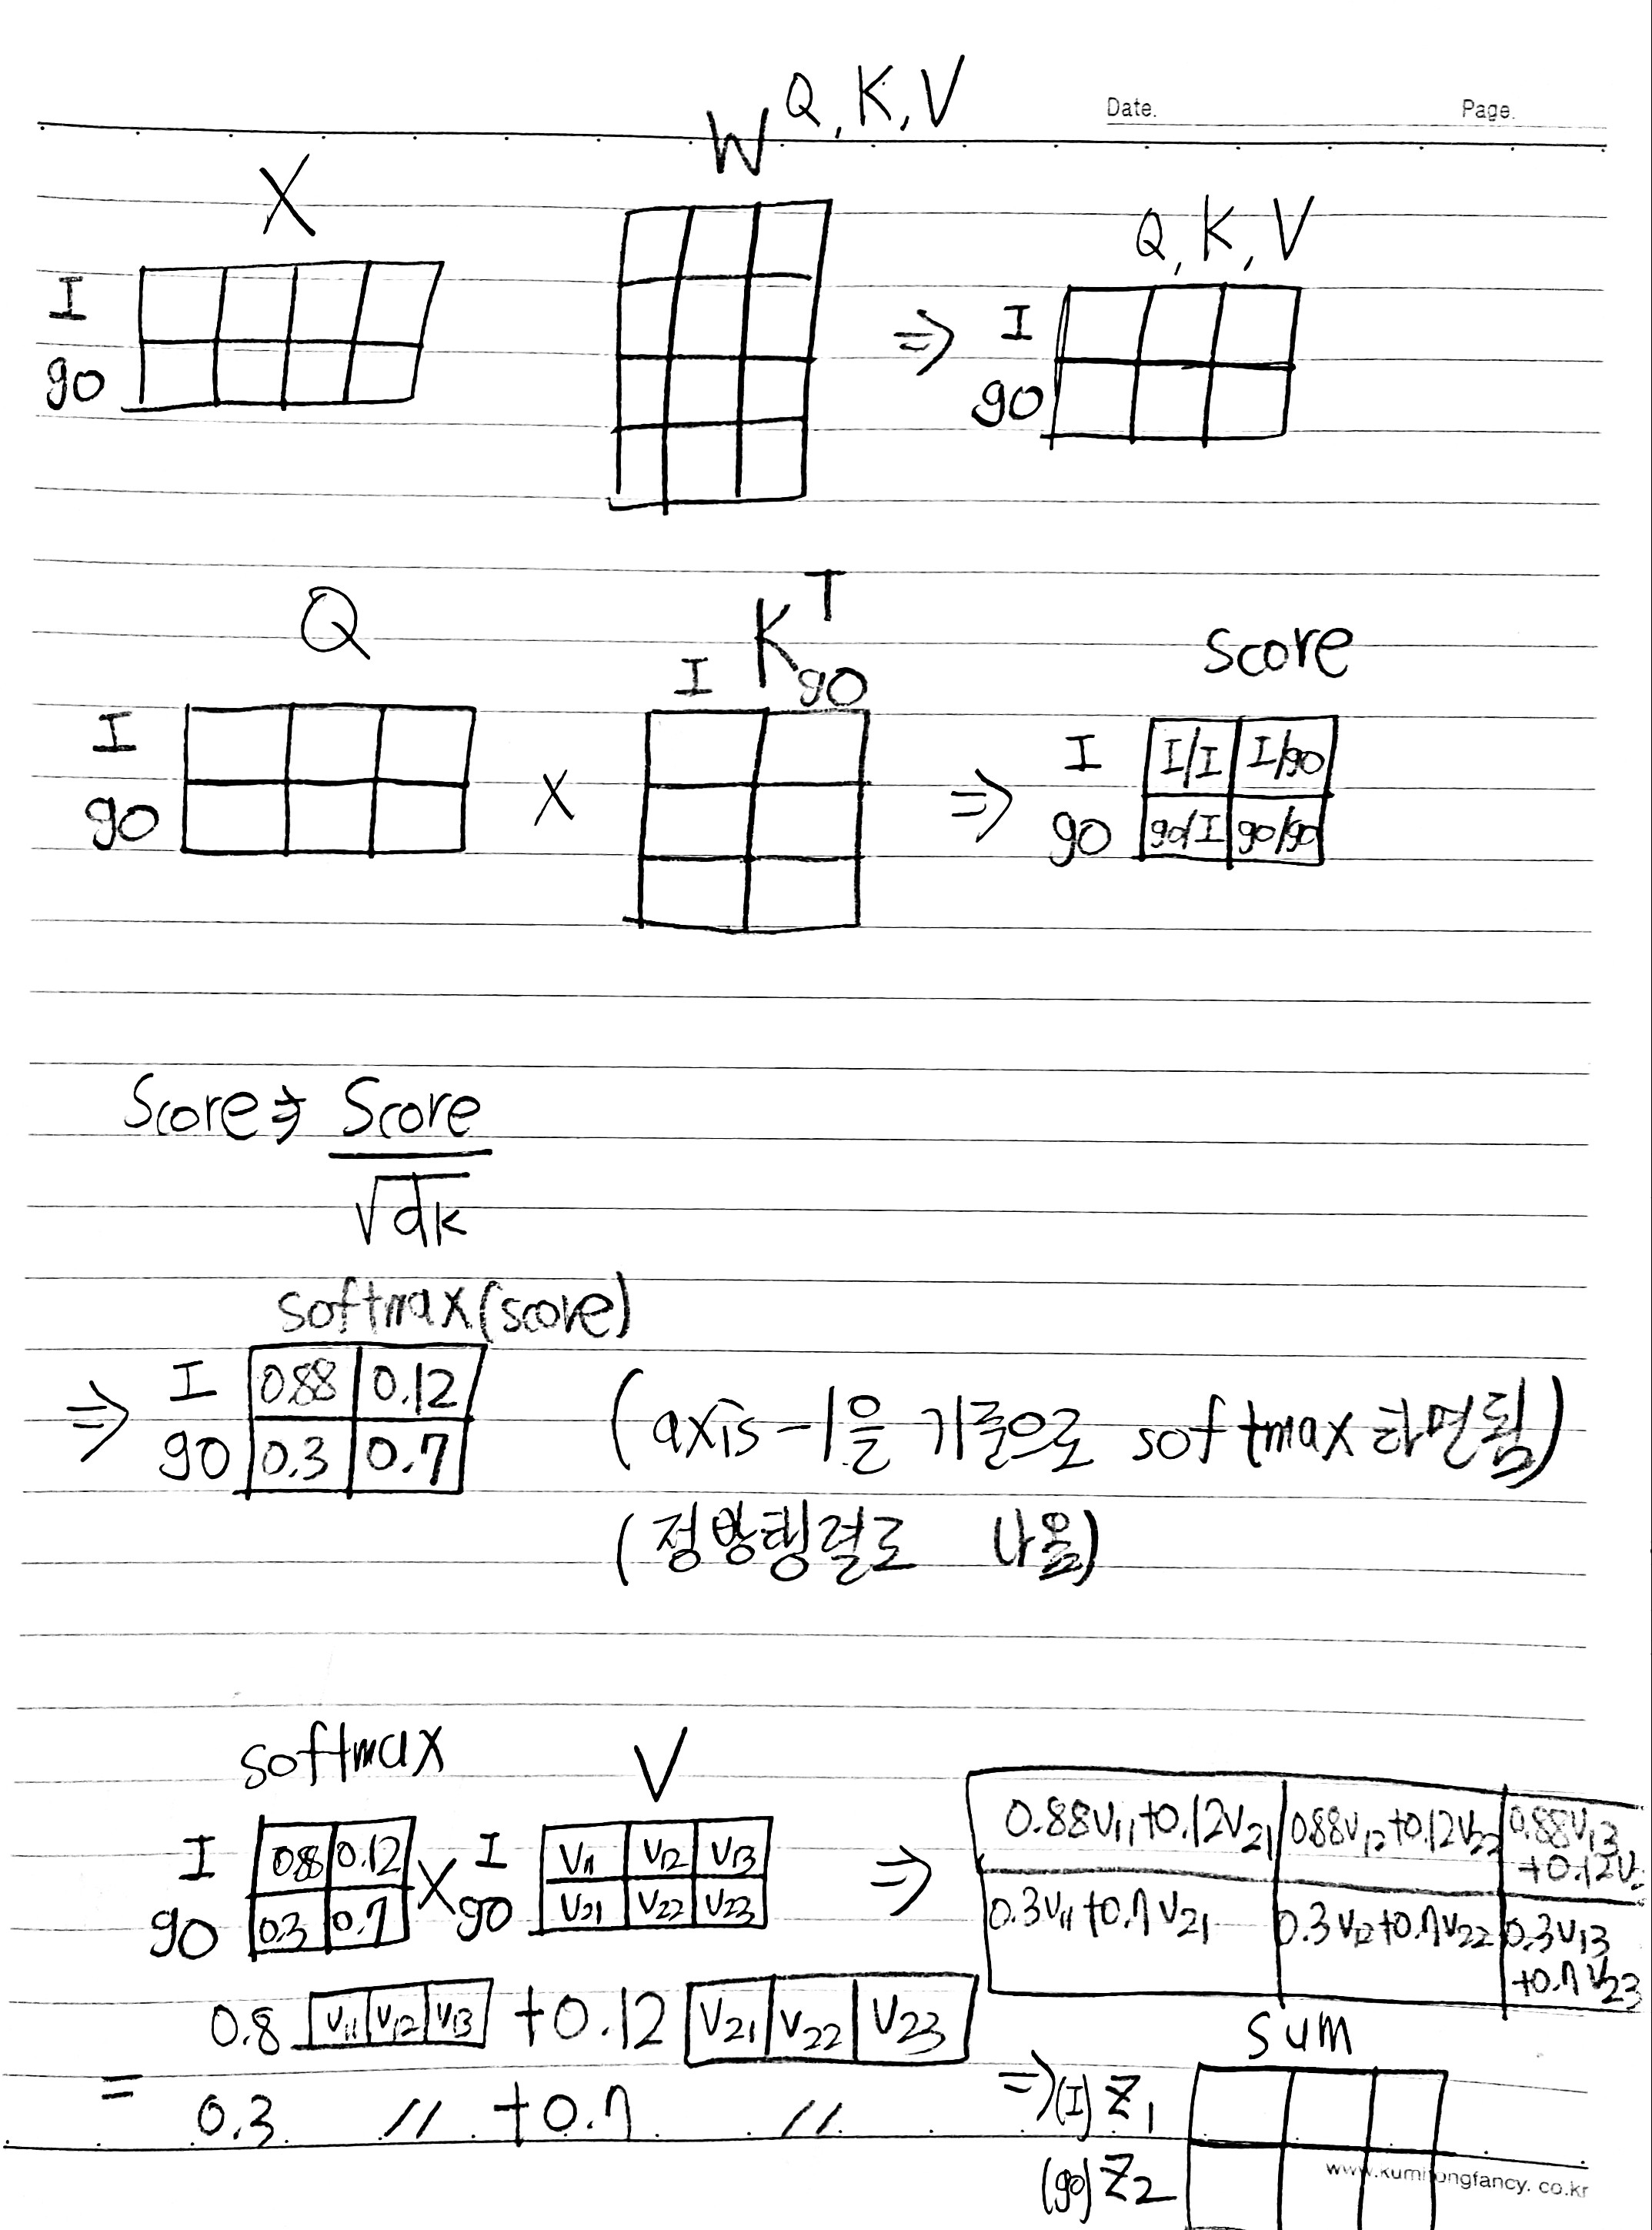 Date. Page.
W Q, K, V
X
Q, K, V
I
go
⇒
I
go
Q
K T
I go
score
I
go
X
⇒
I
go
I/I I/go
go/I go/go
Score ⇒ Score
√dk
softmax(score)
⇒ I 0.88 0.12
go 0.3 0.7
(axis-1을 기준으로 softmax 하면됨)
(정방행렬로 나옴)
softmax
V
I 0.88 0.12
go 0.3 0.7
X
I V11 V12 V13
go V21 V22 V23
⇒
0.88V11+0.12V21 0.88V12+0.12V22 0.88V13
+0.12V
0.3V11+0.7V21 0.3V12+0.7V22 0.3V13
+0.7V23
0.8 V11 V12 V13 +0.12 V21 V22 V23
= 0.3 〃 +0.7 〃
sum
⇒ (I) Z1
(go) Z2
www.kumihongfancy.co.kr